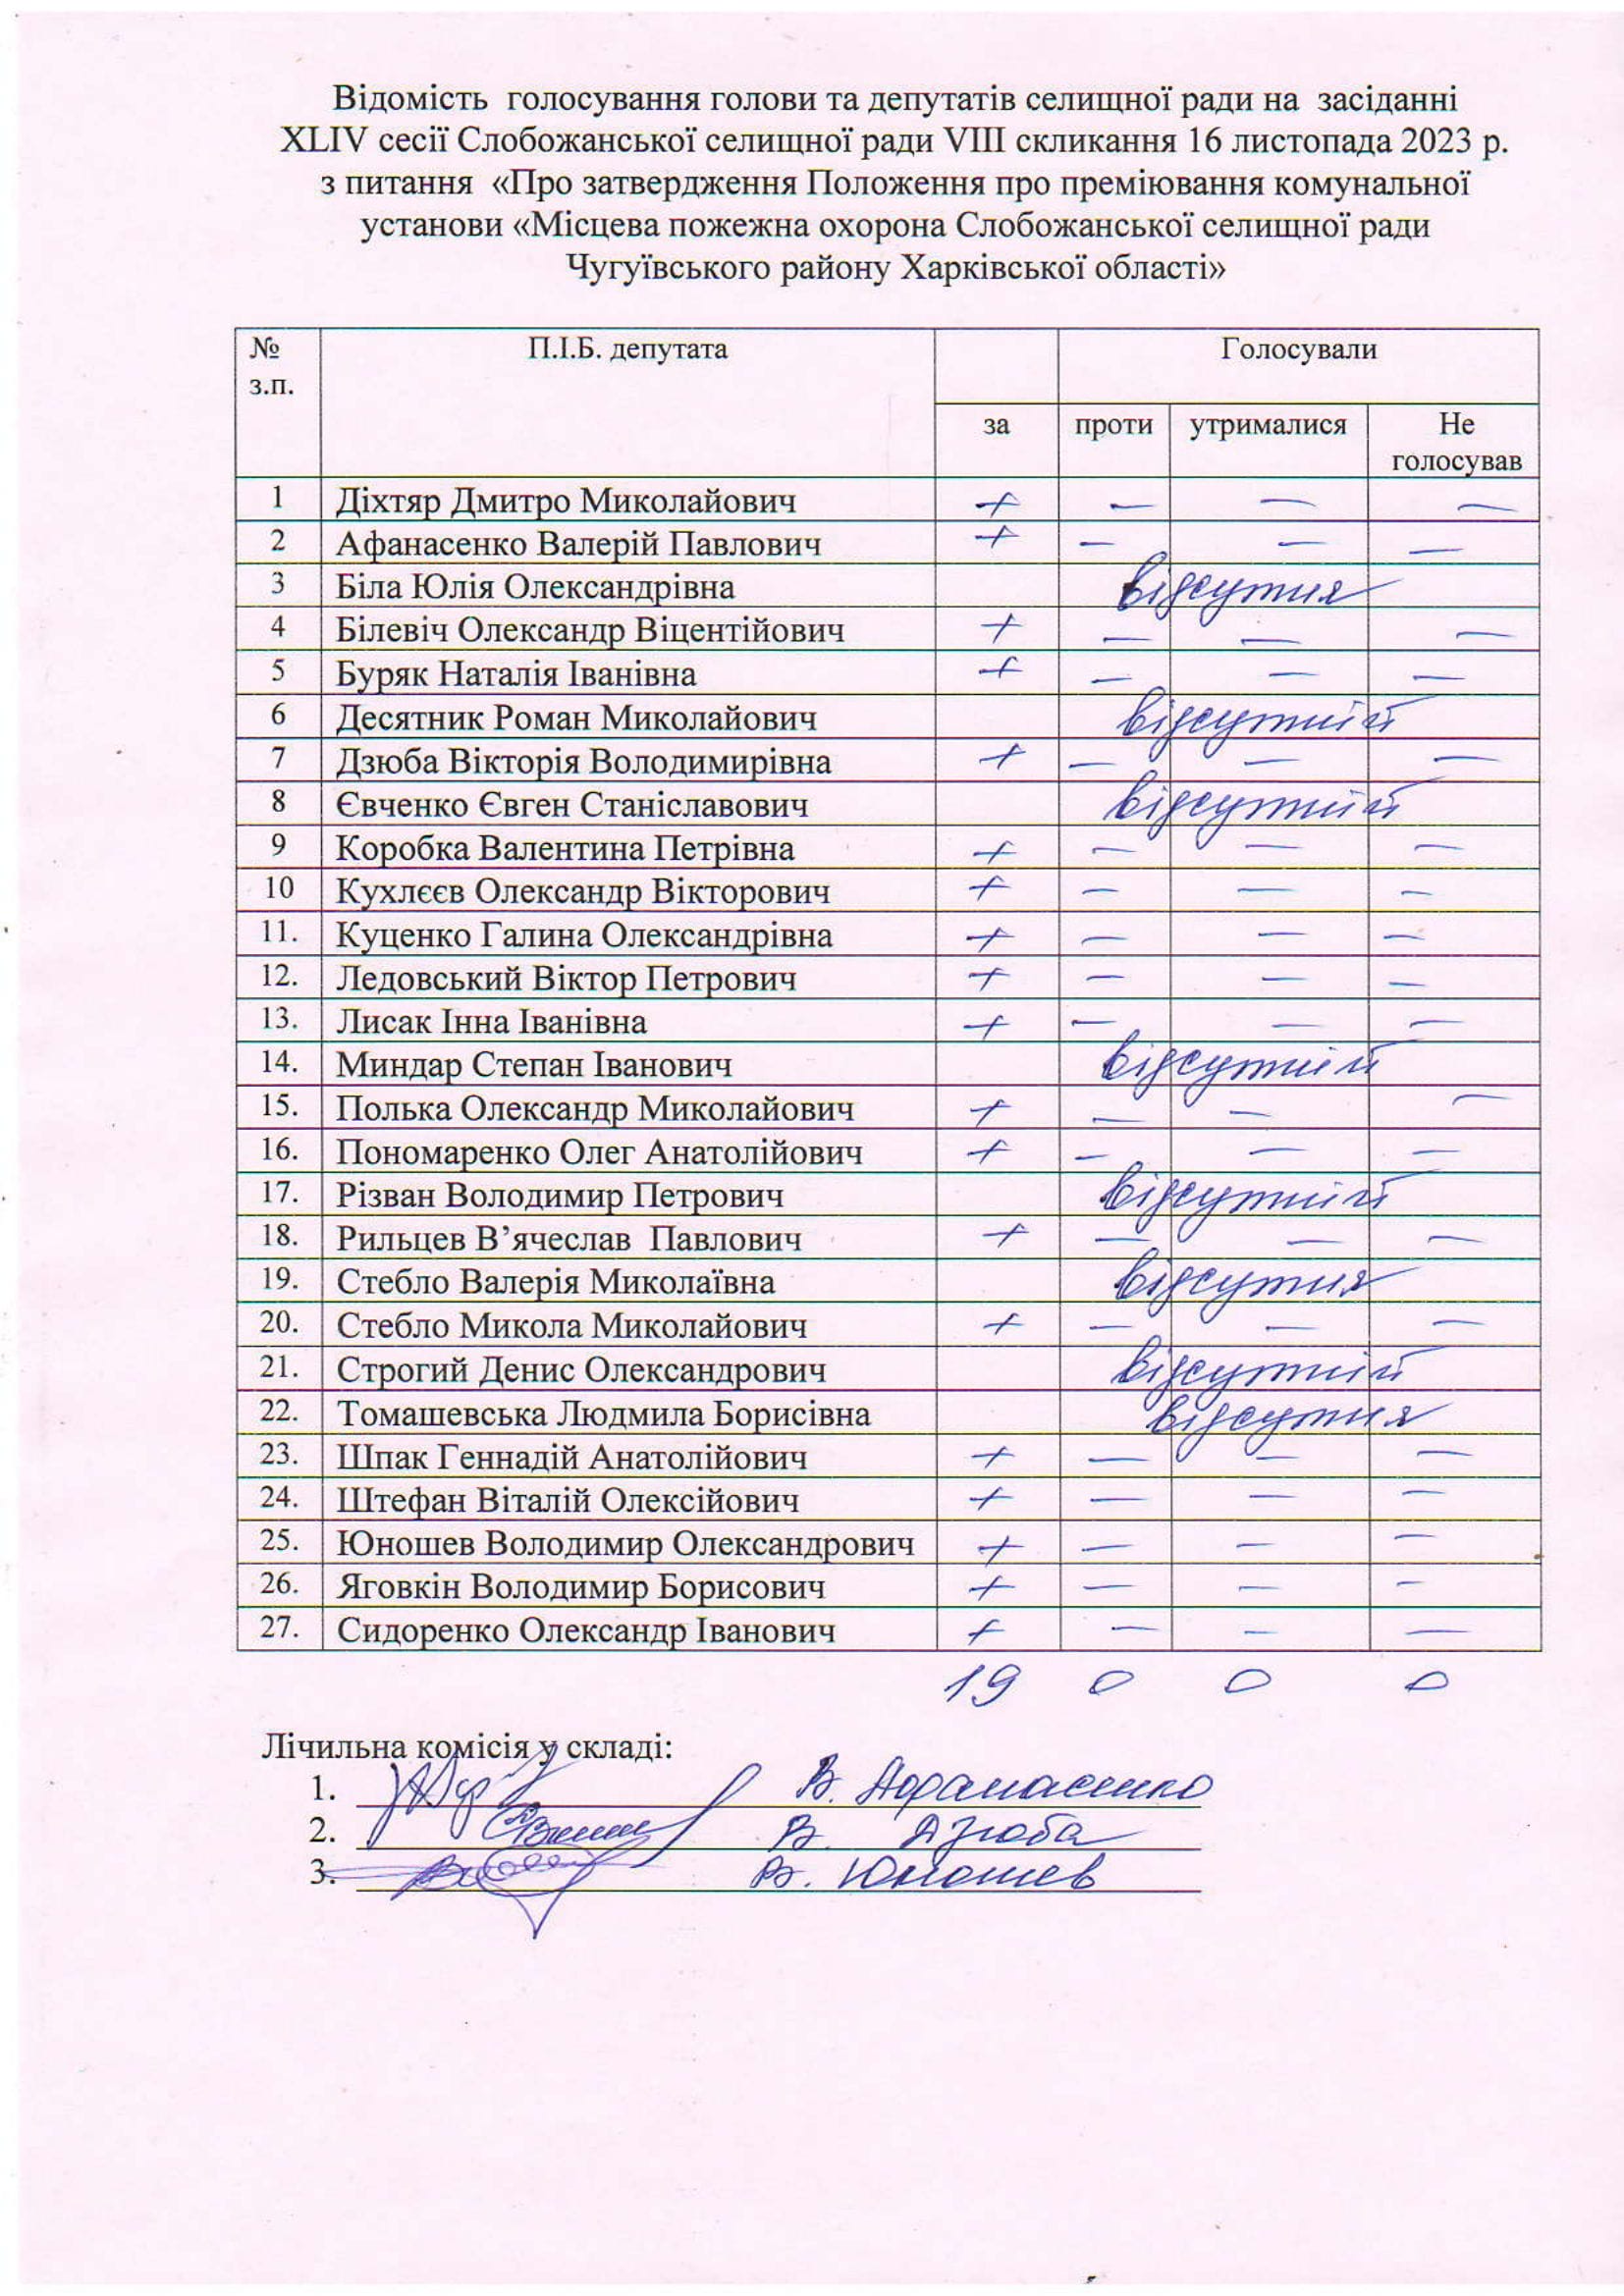 Відомість голосування голови та депутатів селищної ради на засіданні
XLIV сесії Слобожанської селищної ради VIII скликання 16 листопада 2023 р.
з питання «Про затвердження Положення про преміювання комунальної
установи «Місцева пожежна охорона Слобожанської селищної ради
Чугуївського району Харківської області»
№ з.п. П.І.Б. депутата Голосували
за проти утрималися Не голосував
1 Діхтяр Дмитро Миколайович + — — —
2 Афанасенко Валерій Павлович + — — —
3 Біла Юлія Олександрівна відсутня
4 Білевіч Олександр Віцентійович + — — —
5 Буряк Наталія Іванівна + — — —
6 Десятник Роман Миколайович відсутній
7 Дзюба Вікторія Володимирівна + — — —
8 Євченко Євген Станіславович відсутній
9 Коробка Валентина Петрівна + — — —
10 Кухлєєв Олександр Вікторович + — — —
11. Куценко Галина Олександрівна + — — —
12. Ледовський Віктор Петрович + — — —
13. Лисак Інна Іванівна + — — —
14. Миндар Степан Іванович відсутній
15. Полька Олександр Миколайович + — — —
16. Пономаренко Олег Анатолійович + — — —
17. Різван Володимир Петрович відсутній
18. Рильцев В’ячеслав Павлович + — — —
19. Стебло Валерія Миколаївна відсутня
20. Стебло Микола Миколайович + — — —
21. Строгий Денис Олександрович відсутній
22. Томашевська Людмила Борисівна відсутня
23. Шпак Геннадій Анатолійович + — — —
24. Штефан Віталій Олексійович + — — —
25. Юношев Володимир Олександрович + — — —
26. Яговкін Володимир Борисович + — — —
27. Сидоренко Олександр Іванович + — — —
19 0 0 0
Лічильна комісія у складі:
1. В. Афанасенко
2. В. Дзюба
3. В. Юношев